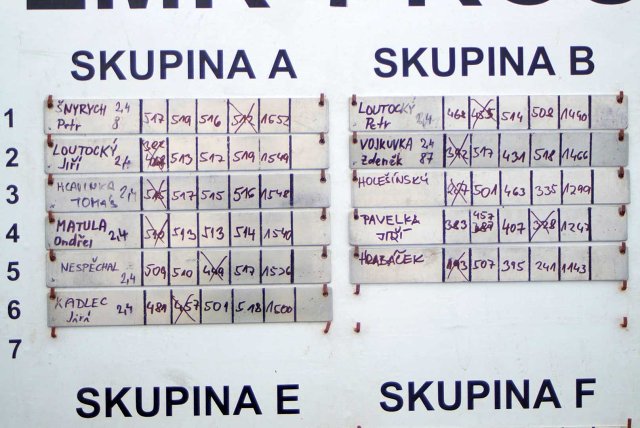 SKUPINA A
1 ŠNYRYCH 2,4 517 519 516 512 1552
Petr 8
2 LOUTOCKÝ 513 517 519 1549
Jiří 2,4
3 HLAVINKA 2,4 517 515 516 1548
TOMÁŠ
4 MATULA 2,4 510 513 513 514 1540
Ondřej
5 NESPĚCHAL 509 510 499 517 1526
2,4
6 KADLEC 2,4 481 457 501 518 1500
Jiří
7
SKUPINA B
LOUTOCKÝ 468 455 514 508 1490
Petr 2,4
VOJKUVKA 24 392 517 431 518 1466
Zdeněk 87
HOLEŠÍNSKÝ 501 463 335 1299
PAVELKA 383 457 407 328 1247
JIŘÍ
HLADÁČEK 507 395 241 1143
SKUPINA E
SKUPINA F